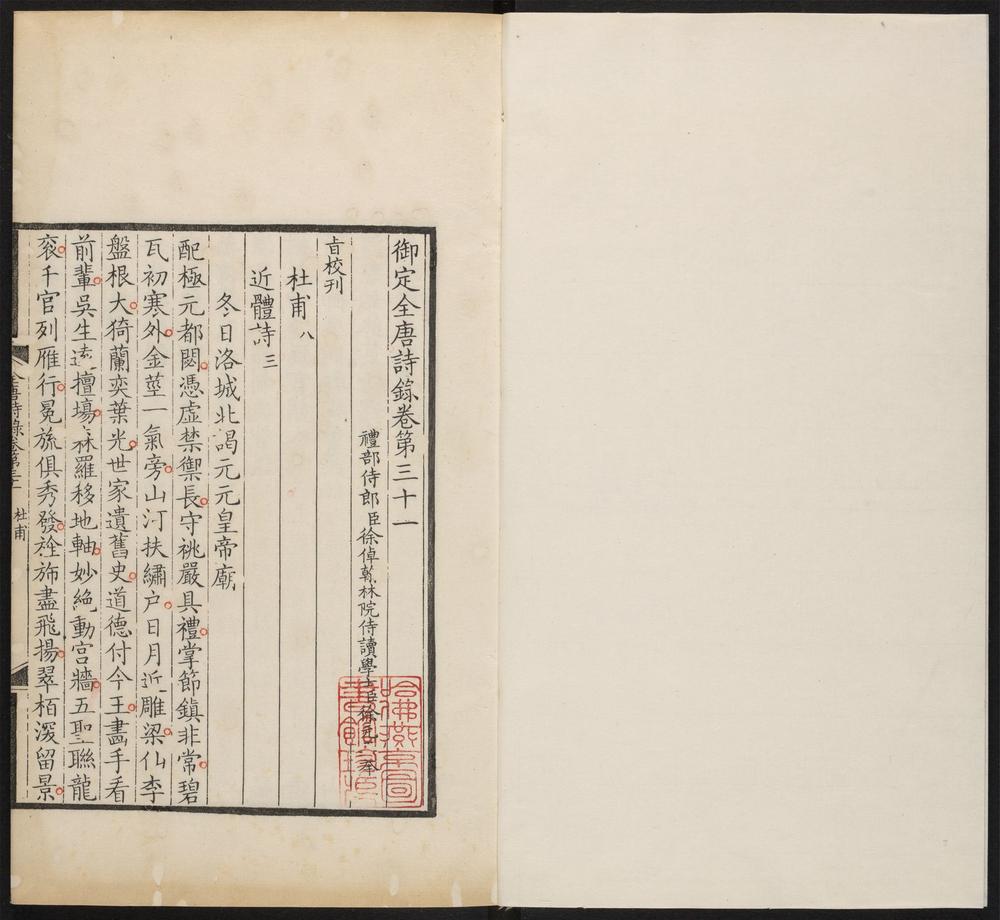 御定全唐詩錄卷第三十一
禮部侍郎臣徐倬翰林院侍讀學士臣徐元正奉
旨校刊
杜甫八
近體詩三
冬日洛城北謁元元皇帝廟
配極元都閟憑虛禁禦長守祧嚴具禮掌節鎮非常碧
瓦初寒外金莖一氣旁山河扶繡户日月近雕梁仙李
盤根大猗蘭奕葉光世家遺舊史道德付今王畫手看
前輩吳生遠擅場森羅移地軸妙絶動宮牆五聖聯龍
衮千官列雁行冕旒俱秀發旌斾盡飛揚翠栢深留景
全唐詩錄卷第三十一 杜甫
哈佛燕京圖書館珍藏